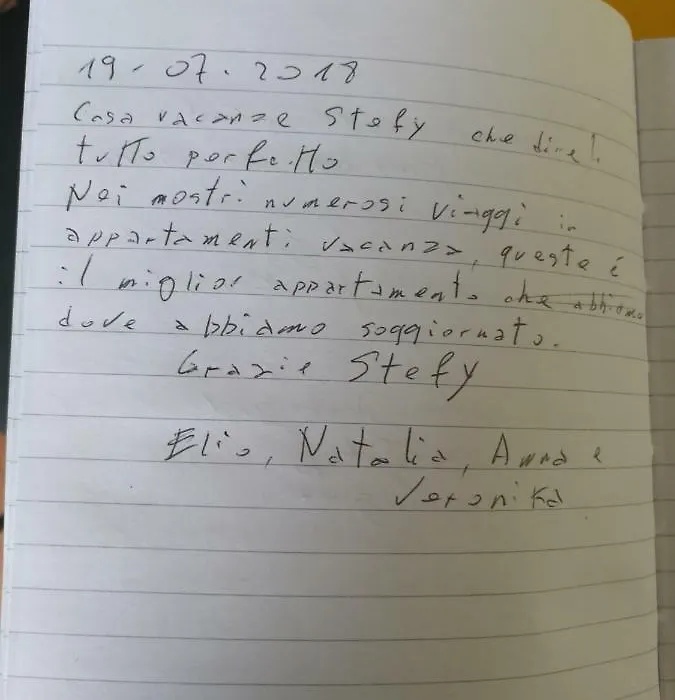 19-07.2018
Casa vacanze Stefy che dire!.
tutto perfetto
Nei nostri numerosi viaggi in
appartamenti vacanza, questo è
il miglior appartamento che abbiamo
dove abbiamo soggiornato.
Grazie Stefy
Elio, Natalia, Anna e
Veronika